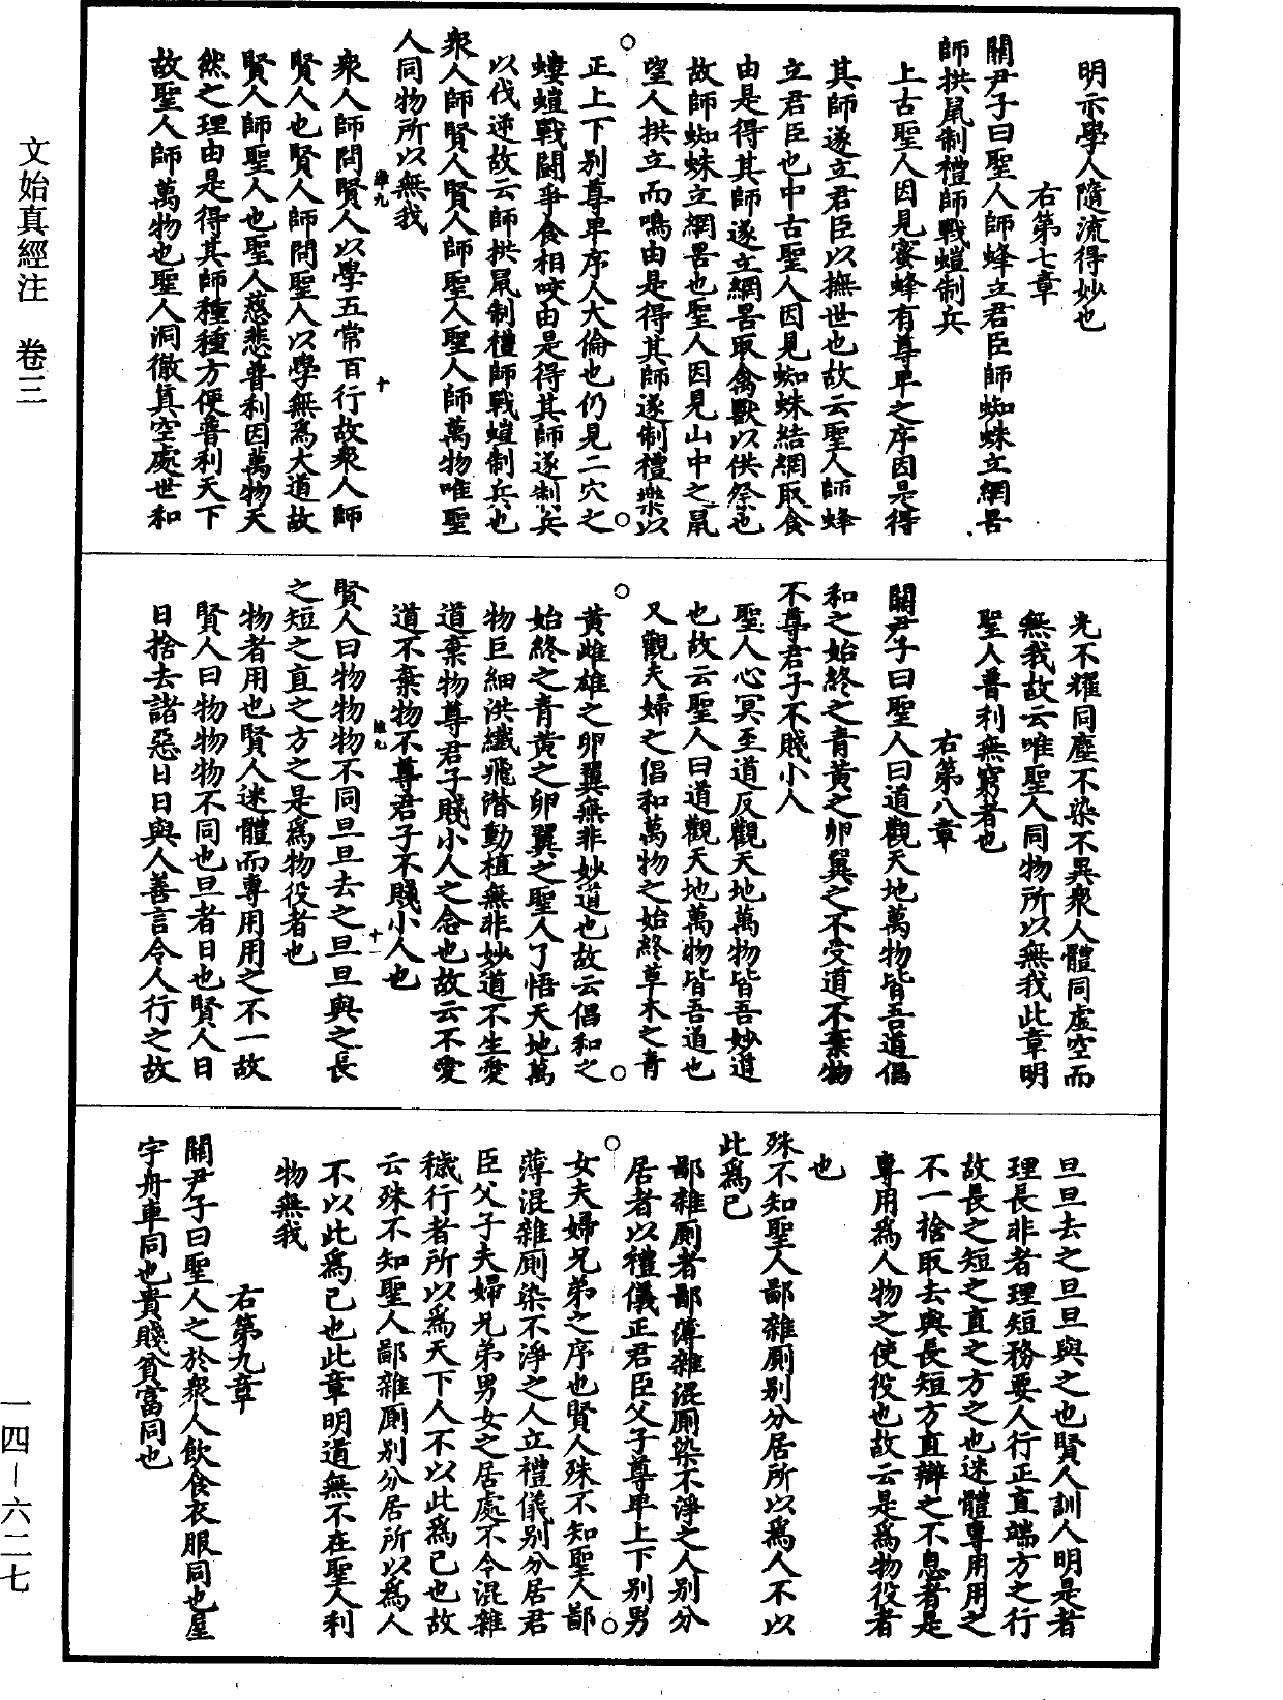 明示學人隨流得妙也
右第七章
關尹子曰聖人師蜂立君臣師蜘蛛立網罟
師拱鼠制禮師戰螘制兵
上古聖人因見蜜蜂有尊卑之序因是得
其師遂立君臣以撫世也故云聖人師蜂
立君臣也中古聖人因見蜘蛛結網取食
由是得其師遂立網罟取禽獸以供祭也
故師蜘蛛立網罟也聖人因見山中之鼠
望人拱立而鳴由是得其師遂制禮樂以
正上下別尊卑序人大倫也仍見二穴之
螻螘戰鬭爭食相咬由是得其師遂制兵
以伐逆故云師拱鼠制禮師戰螘制兵也
衆人師賢人賢人師聖人聖人師萬物唯聖
人同物所以無我
衆人師問賢人以學五常百行故衆人師
賢人也賢人師問聖人以學無爲大道故
賢人師聖人也聖人慈悲普利因萬物天
然之理由是得其師種種方便普利天下
故聖人師萬物也聖人洞徹真空處世和
光不耀同塵不染不異衆人體同虛空而
無我故云唯聖人同物所以無我此章明
聖人普利無窮者也
右第八章
關尹子曰聖人曰道觀天地萬物皆吾道倡
和之始終之青黃之卵翼之不受道不棄物
不尊君子不賤小人
聖人心冥至道反觀天地萬物皆吾妙道
也故云聖人曰道觀天地萬物皆吾道也
又觀夫婦之倡和萬物之始終草木之青
黃雌雄之卵翼無非妙道也故云倡和之
始終之青黃之卵翼之聖人了悟天地萬
物巨細洪纖飛潛動植無非妙道不生愛
道棄物尊君子賤小人之念也故云不愛
道不棄物不尊君子不賤小人也
賢人曰物物物不同旦旦去之旦旦與之長
之短之直之方之是爲物役者也
物者用也賢人迷體而專用用之不一故
賢人曰物物物不同也旦者日也賢人日
日捨去諸惡日日與人善言令人行之故
旦旦去之旦旦與之也賢人訓人明是者
理長非者理短務要人行正直端方之行
故長之短之直之方之也迷體專用用之
不一捨取去與長短方直辯之不息者是
專用爲人物之使役也故云是爲物役者
也
殊不知聖人鄙雜厠別分居所以爲人不以
此爲已
鄙雜厠者鄙薄雜混厠染不淨之人別分
居者以禮儀正君臣父子尊卑上下別男
女夫婦兄弟之序也賢人殊不知聖人鄙
薄混雜厠染不淨之人立禮儀別分居君
臣父子夫婦兄弟男女之居處不令混雜
穢行者所以爲天下人不以此爲已也故
云殊不知聖人鄙雜厠別分居所以爲人
不以此爲已也此章明道無不在聖人利
物無我
右第九章
關尹子曰聖人之於衆人飲食衣服同也屋
宇舟車同也貴賤貧富同也
文始真經注　卷三
一四—六二七